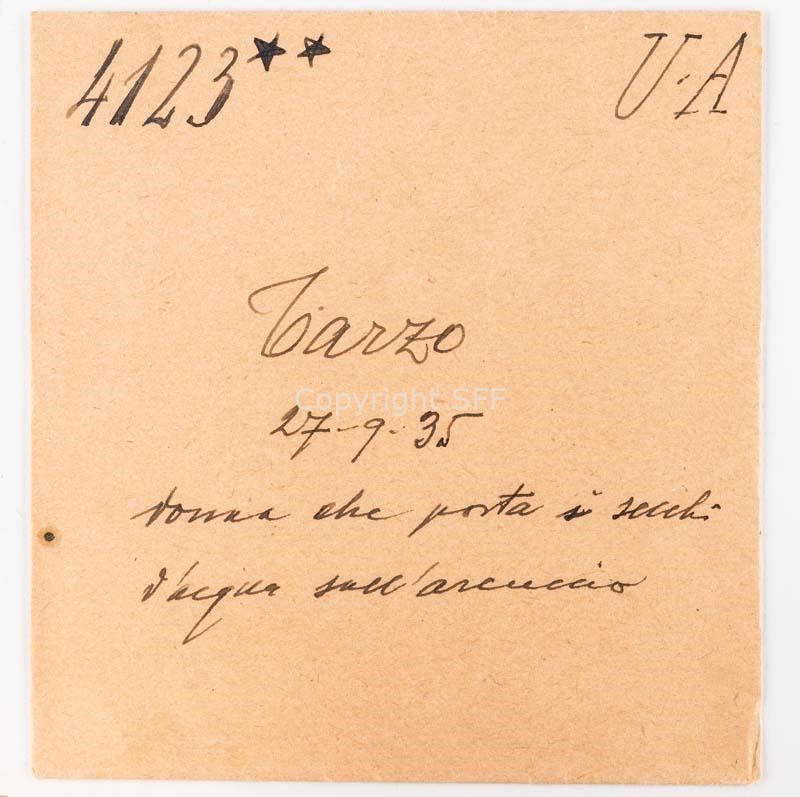 4123★★ U·A
Tarzo
Copyright SFF
27-9-35
donna che porta i secchi
d'acqua sull'arcuccio